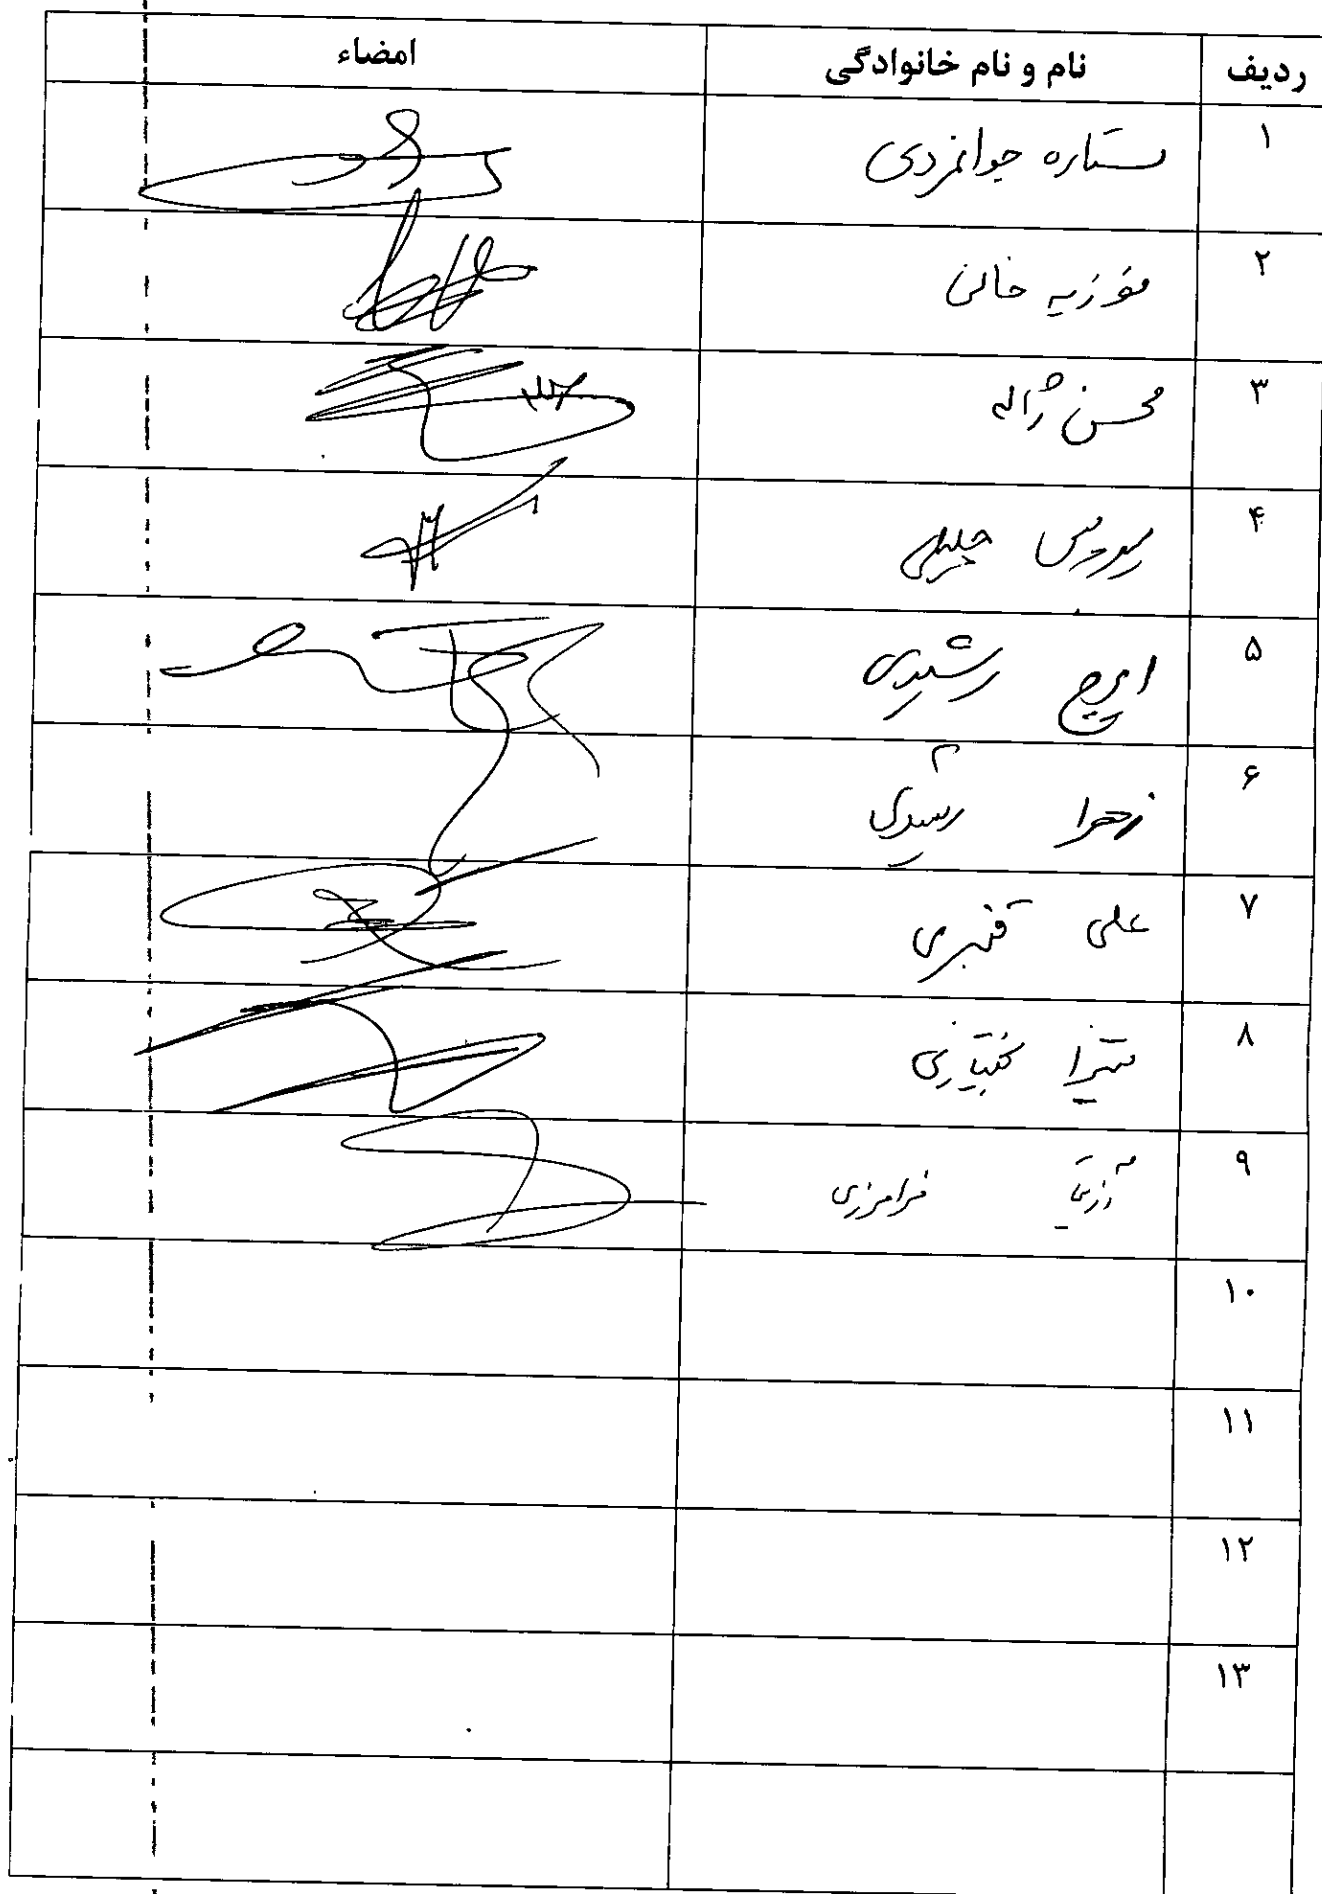 ردیف نام و نام خانوادگی امضاء
۱ ستاره جوانمردی
۲ فوزیه خانی
۳ محسن ژاله
۴ سیروس جلیلی
۵ ایرج رشیدی
۶ زهرا رشیدی
۷ علی قنبری
۸ میترا بختیاری
۹ آزیتا فرامرزی
۱۰
۱۱
۱۲
۱۳